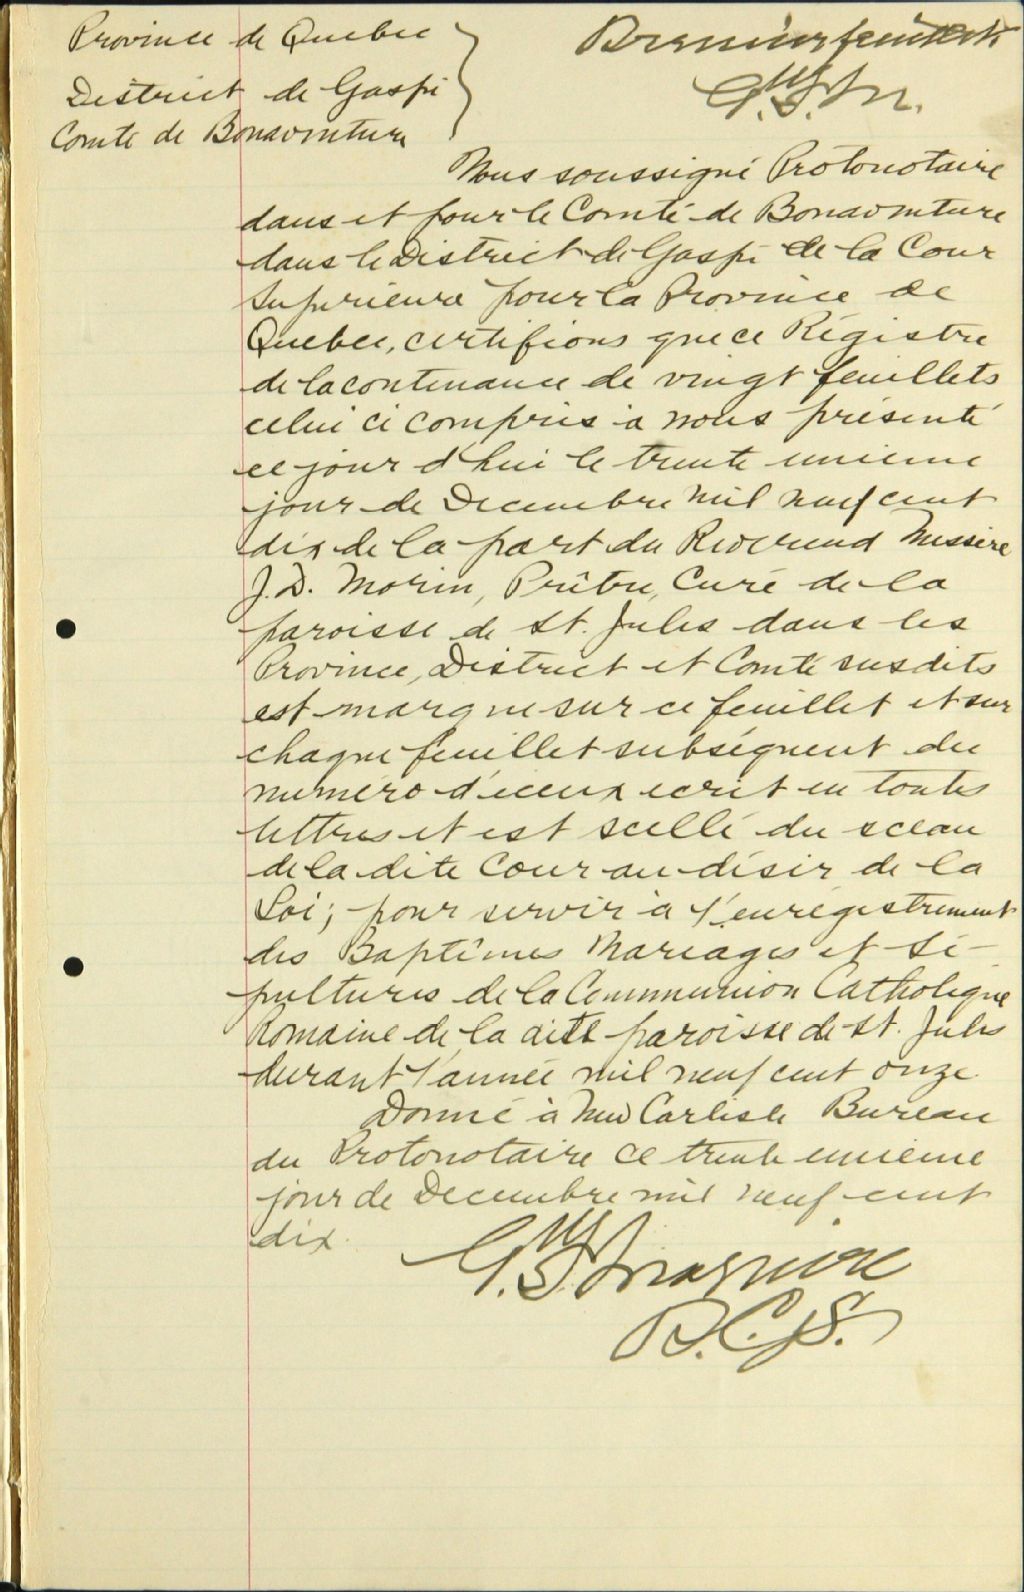 Province de Quebec
District de Gaspé
Comté de Bonaventure
Premier feuillet
Nous soussigné Protonotaire
dans et pour le Comté de Bonaventure
dans le District de Gaspé de la Cour
Superieure pour la Province de
Quebec, certifions que ce Régistre
de la contenance de vingt feuillets
celui ci compris à nous présenté
ce jour d'hui le trente unieme
jour de Decembre mil neuf cent
dix de la part du Reverend Messire
J.D. Morin, Prêtre, Curé de la
paroisse de St. Jules dans les
Province, District et Comté susdits
est marque sur ce feuillet et sur
chaque feuillet subséquent du
numéro d'iceux ecrit en toutes
lettres et est scellé du sceau
de la dite Cour au désir de la
Loi; pour servir à l'enrégistrement
des Baptêmes Mariages et Sé-
pultures de la Communion Catholique
Romaine de la dite paroisse de St. Jules
durant l'année mil neuf cent onze.
Donné à New Carlisle Bureau
du Protonotaire ce trente unieme
jour de Decembre mil neuf cent
dix.
P.C.S.